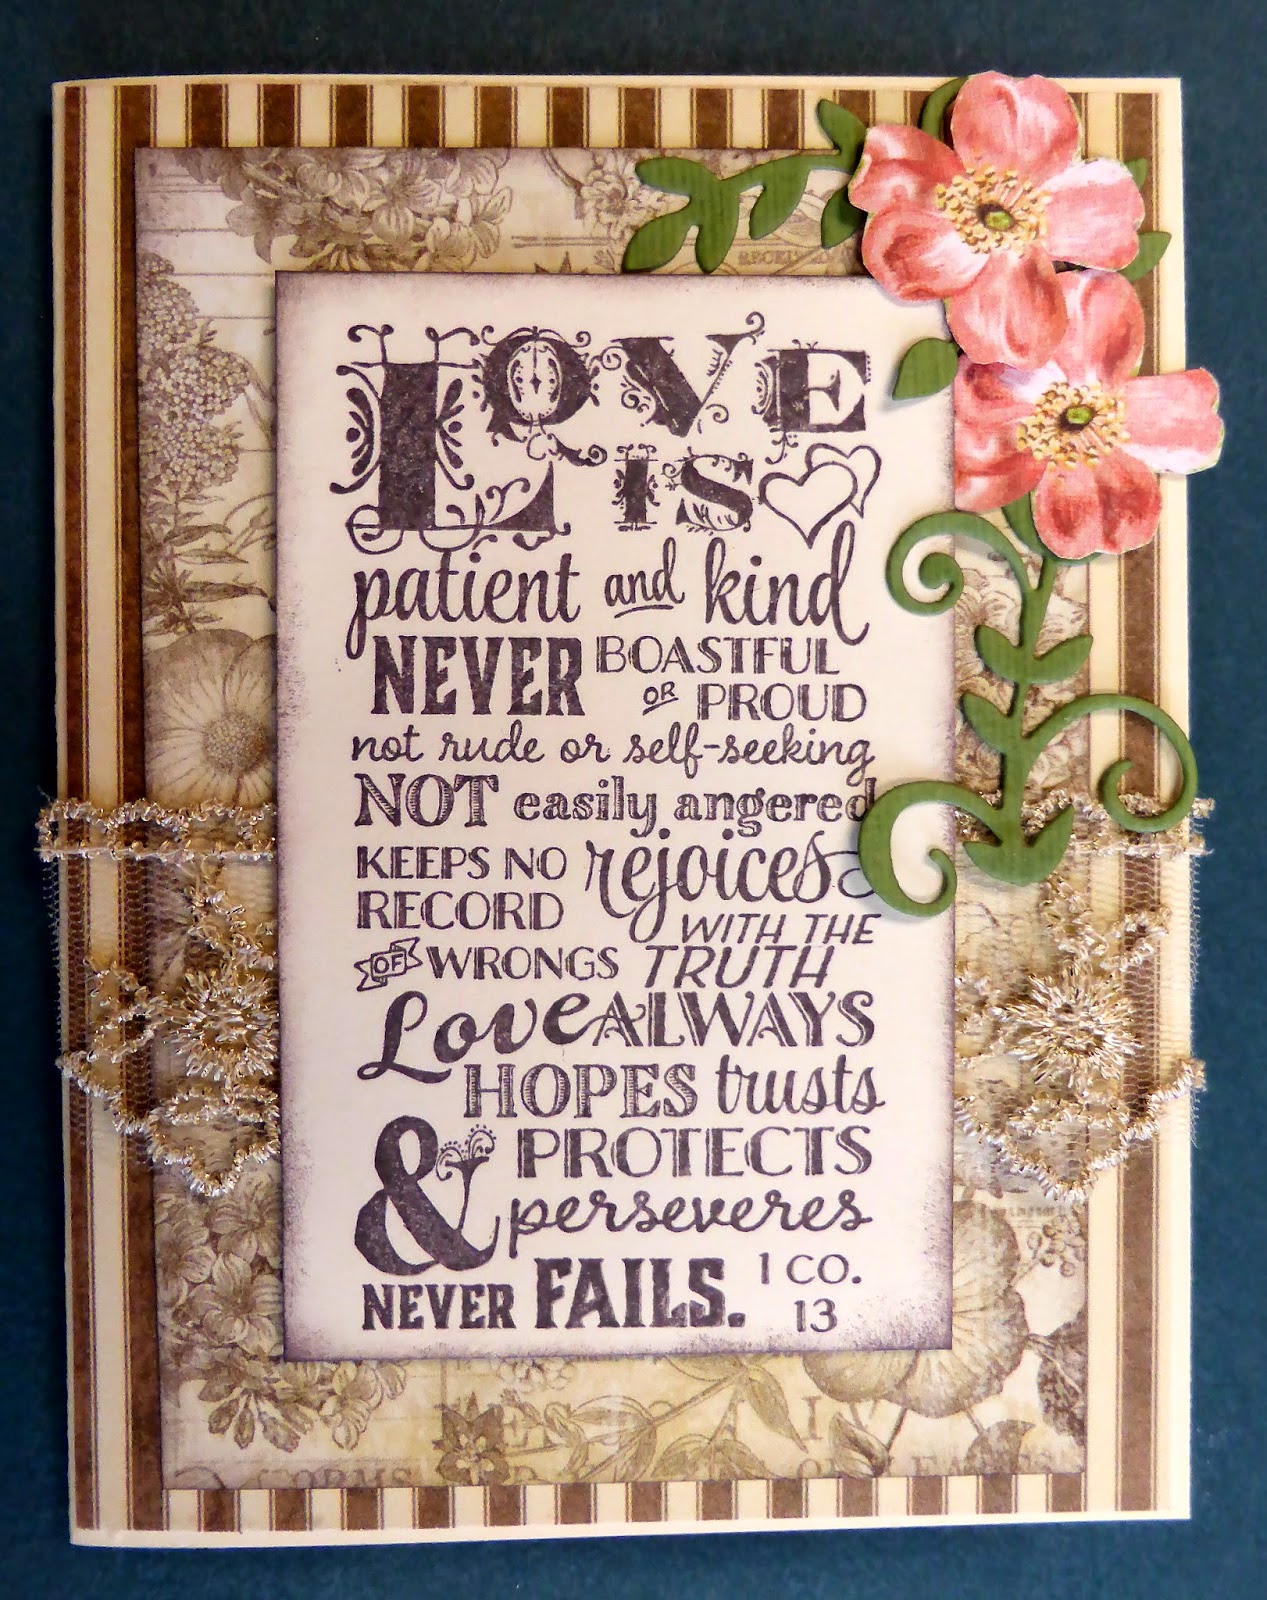 LOVE
IS
patient and kind
NEVER BOASTFUL
OR PROUD
not rude or self-seeking
NOT easily angered
KEEPS NO
RECORD
OF WRONGS
rejoices
WITH THE
TRUTH
Love ALWAYS
HOPES trusts
& PROTECTS
perseveres
NEVER FAILS. 1 CO.
13